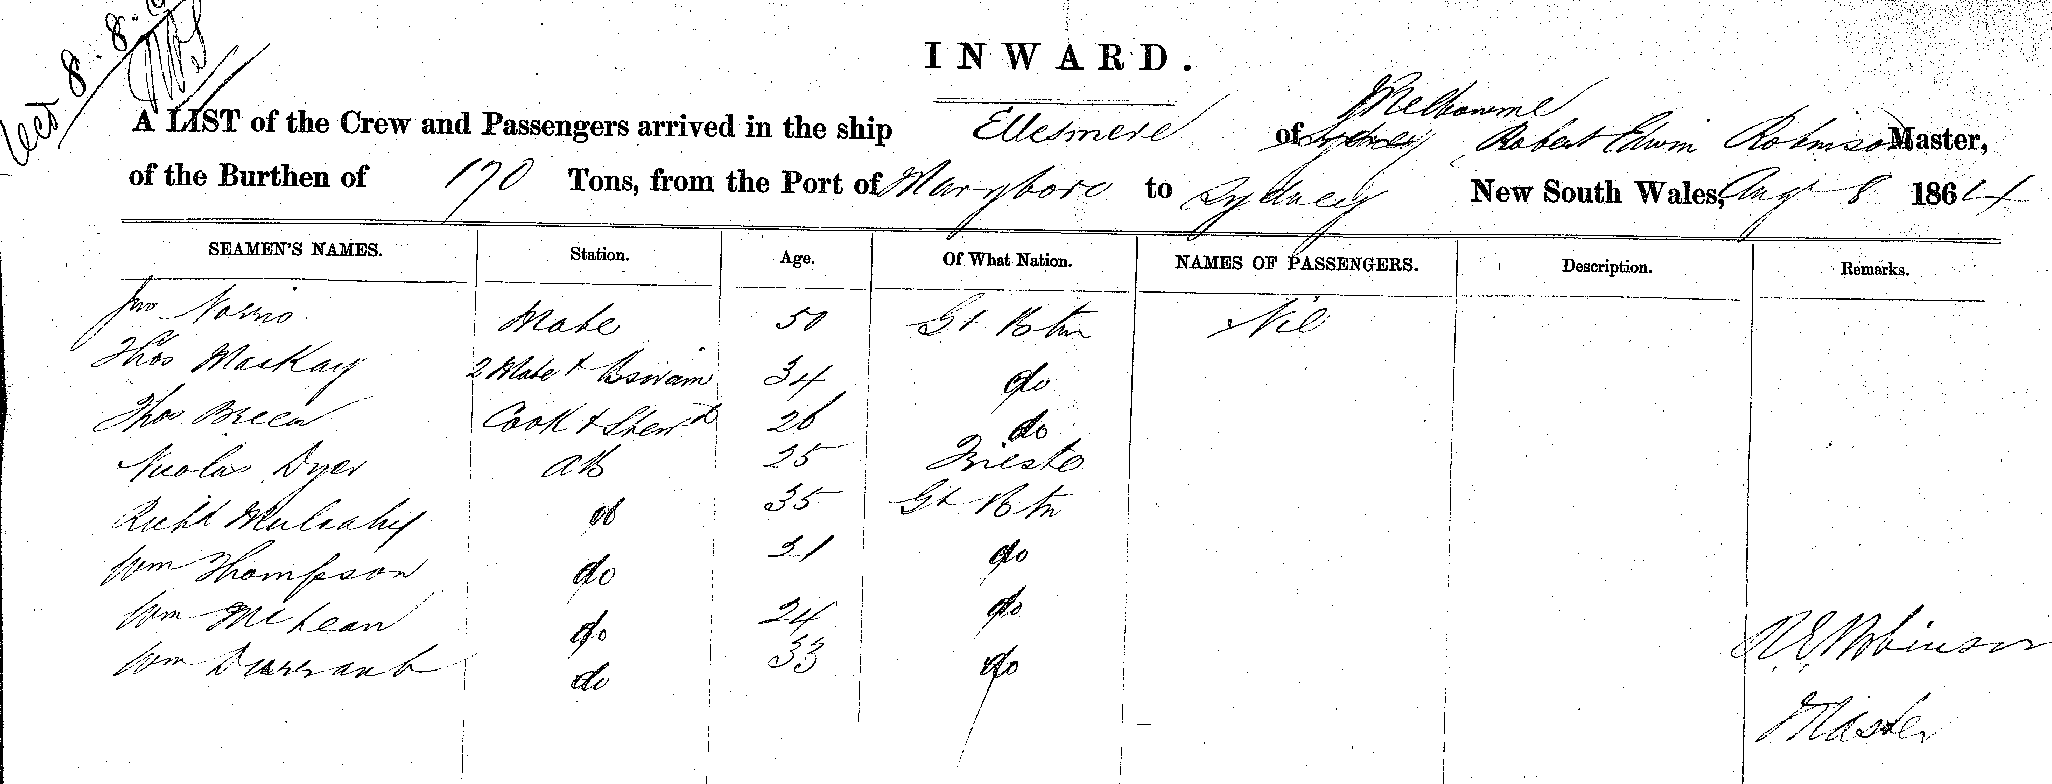 Recd 8.8.
INWARD.
A LIST of the Crew and Passengers arrived in the ship Ellesmere of Sydney Melbourne Robert Edwin Robinson Master,
of the Burthen of 170 Tons, from the Port of Maryboro to Sydney New South Wales, Augt 8 1864
SEAMEN'S NAMES. Station. Age. Of What Nation. NAMES OF PASSENGERS. Description. Remarks.
Jno Norris Mate 50 Gt Btn Nil
Thos MacKay 2 Mate + Bswain 34 do
Thos Breen Cook + Stewd 26 do
Nicolas Dyer AB 25 Trieste
Richd Mulcahy AB 35 Gt Btn
Wm Thompson do 31 do
Wm McLean do 24 do
Wm Durrant do 33 do
R.E. Robinson
Master